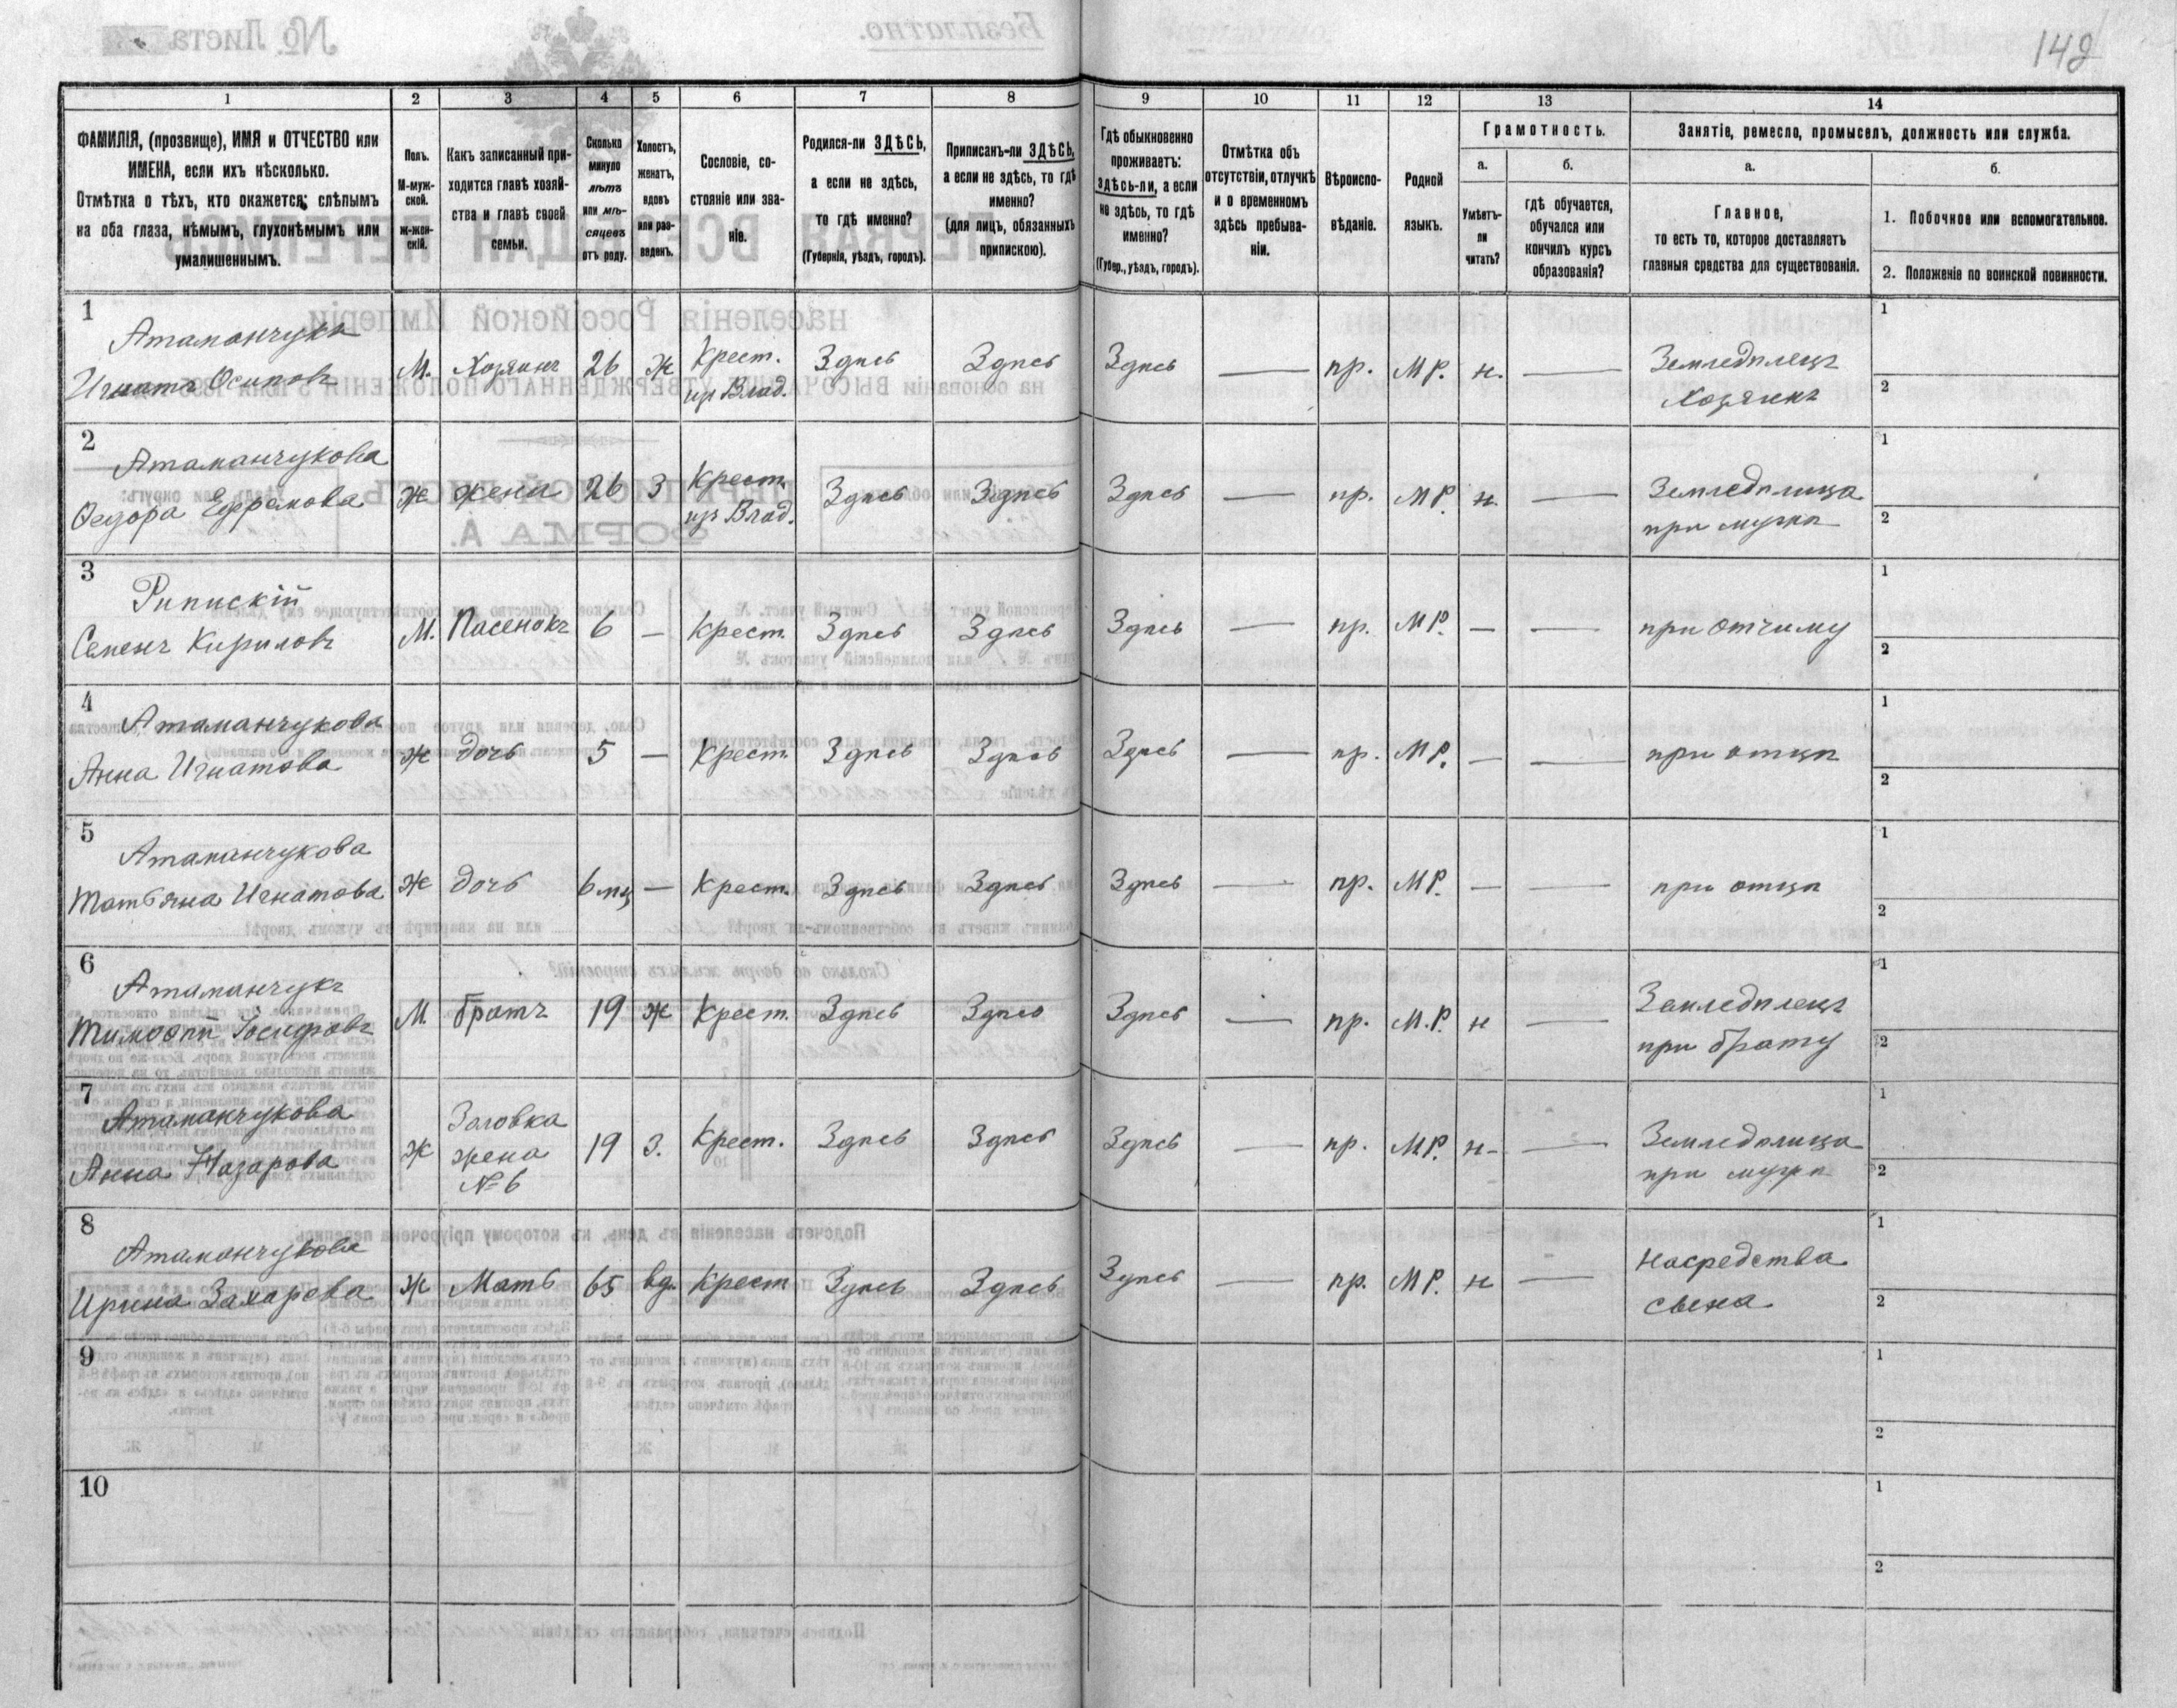 142
1 2 3 4 5 6 7 8 9 10 11 12 13 14
ФАМИЛІЯ, (прозвище), ИМЯ и ОТЧЕСТВО или
ИМЕНА, если ихъ нѣсколько.
Отмѣтка о тѣхъ, кто окажется: слѣпымъ
на оба глаза, нѣмымъ, глухонѣмымъ или
умалишеннымъ.
Полъ.
М-муж-
ской.
ж-жен-
скій.
Какъ записанный при-
ходится главѣ хозяй-
ства и главѣ своей
семьи.
Сколько
минуло
лѣтъ
или мѣ-
сяцевъ
отъ роду.
Холостъ,
женатъ,
вдовъ
или раз-
веденъ.
Сословіе, со-
стояніе или зва-
ніе.
Родился-ли ЗДѢСЬ,
а если не здѣсь,
то гдѣ именно?
(Губернія, уѣздъ, городъ).
Приписанъ-ли ЗДѢСЬ,
а если не здѣсь, то гдѣ
именно?
(для лицъ, обязанныхъ
припискою).
Гдѣ обыкновенно
проживаетъ:
здѣсь-ли, а если
не здѣсь, то гдѣ
именно?
(Губер., уѣздъ, городъ).
Отмѣтка объ
отсутствіи, отлучкѣ
и о временномъ
здѣсь пребыва-
ніи.
Вѣроиспо-
вѣданіе.
Родной
языкъ.
Грамотность.
а. б.
Умѣетъ-
ли
читать?
гдѣ обучается,
обучался или
кончилъ курсъ
образованія?
Занятіе, ремесло, промыселъ, должность или служба.
а. б.
Главное,
то есть то, которое доставляетъ
главныя средства для существованія.
1. Побочное или вспомогательное.
2. Положеніе по воинской повинности.
1
Атаманчукъ
Игнатъ Осиповъ М. Хозяинъ 26 ж Крест. из Влад. Здѣсь Здѣсь Здѣсь — пр. М.Р. н. — Земледѣлецъ
Хозяинъ
1
2
2
Атаманчукова
Федора Ефремова ж жена 26 З Крест. из Влад. Здѣсь Здѣсь Здѣсь — пр. М.Р. н. — Земледѣлица
при мужѣ
1
2
3
Рипискій
Семенъ Кириловъ М. Пасенокъ 6 — Крест. Здѣсь Здѣсь Здѣсь — пр. М.Р. — — при отчиму
1
2
4
Атаманчукова
Анна Игнатова ж дочь 5 — Крест. Здѣсь Здѣсь Здѣсь — пр. М.Р. — — при отцѣ
1
2
5
Атаманчукова
Татьяна Игнатова ж дочь 6 мц — Крест. Здѣсь Здѣсь Здѣсь — пр. М.Р. — — при отцѣ
1
2
6
Атаманчукъ
Тимофѣй Іосифовъ М. братъ 19 ж Крест. Здѣсь Здѣсь Здѣсь — пр. М.Р. н — Земледѣлецъ
при брату
1
2
7
Атаманчукова
Анна Назарова ж Заловка
жена
№ 6 19 З. Крест. Здѣсь Здѣсь Здѣсь — пр. М.Р. н — Земледѣлица
при мужѣ
1
2
8
Атаманчукова
Ирина Захарова ж Мать 65 вд. Крест. Здѣсь Здѣсь Здѣсь — пр. М.Р. н — На средства
сына
1
2
9
1
2
10
1
2